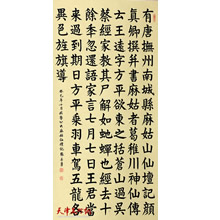 有唐撫州南城縣麻姑山仙壇記顏
真卿撰并書麻姑者葛稚川神仙傳
云王遠字方平欲東之括蒼山過吳
蔡經家教其尸解如蛇蟬也經去十
餘季忽還語家言七月七日王君當
來過到期日方平乘羽車駕五龍各
異色旌旗導